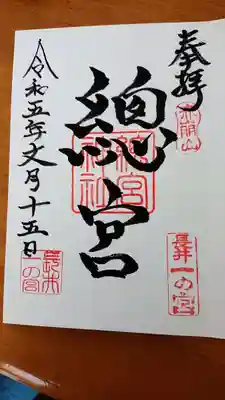 奉拝
赤崩山
長井一の宮
總宮
總宮神社
令和五年文月十五日
長井一の宮